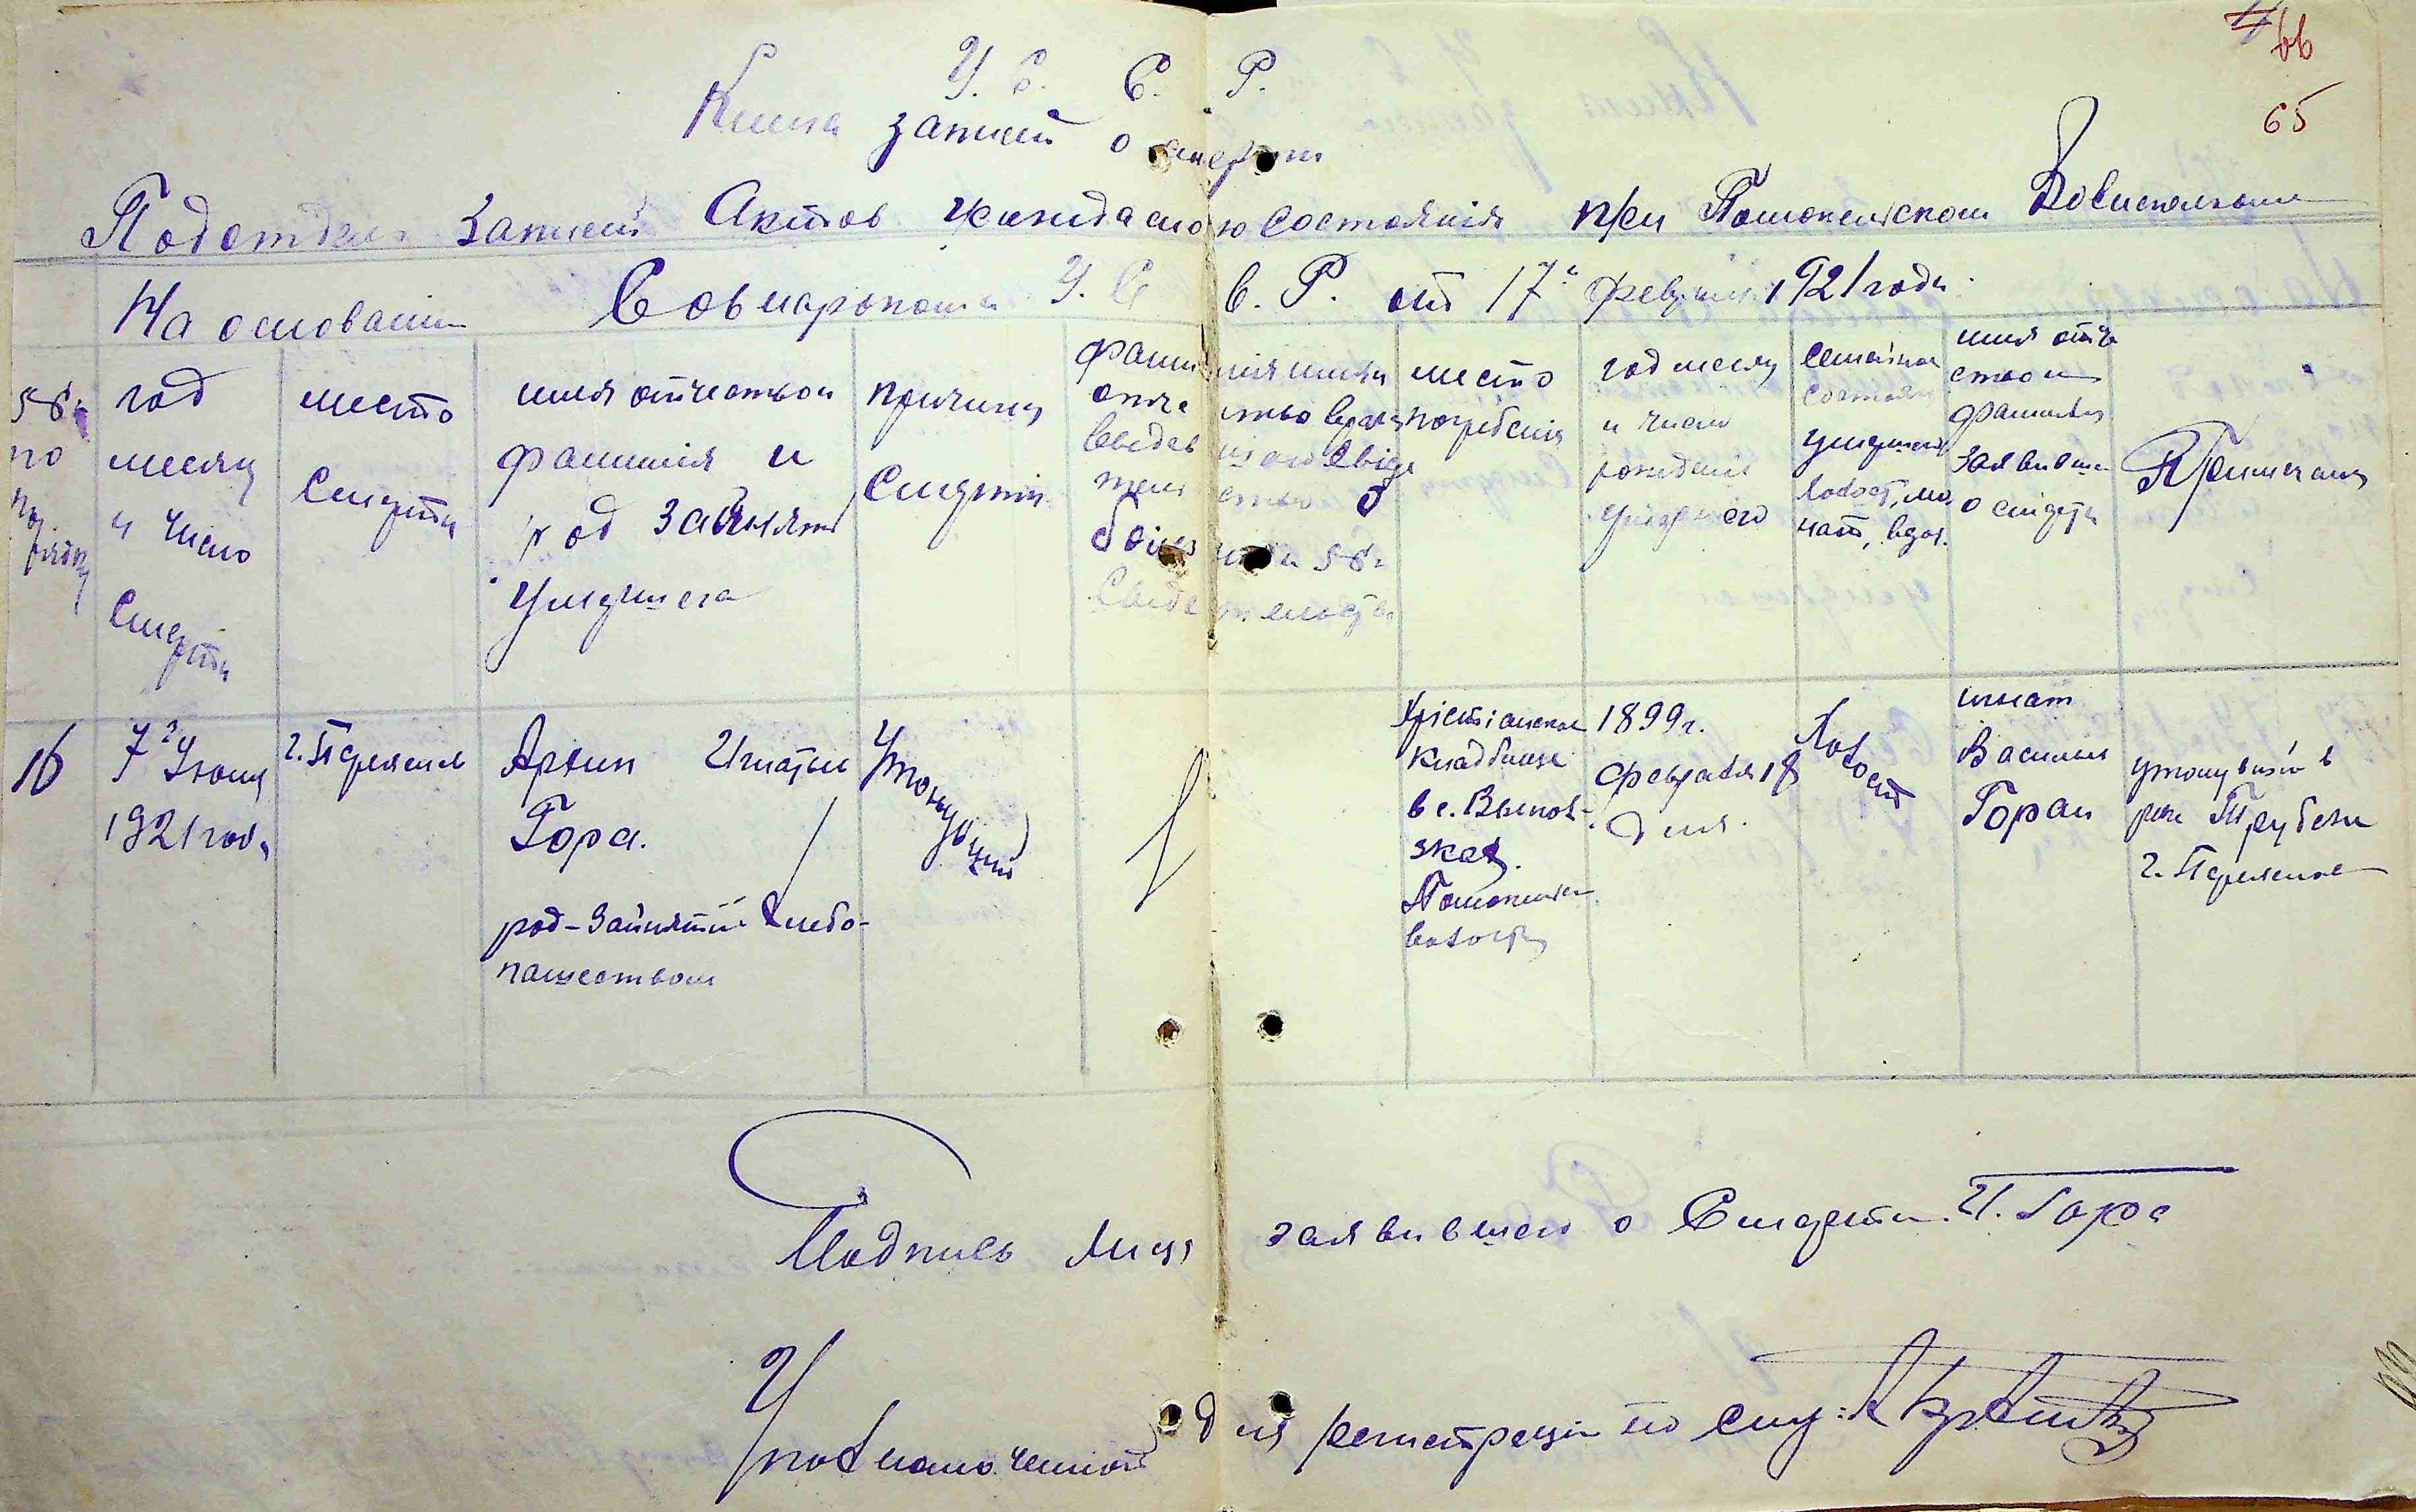 66
65
У. С. С. Р.
Книга записей о смерти
Подотдел Записей Актов Гражданского состояния при Помоклиском Волисполкоме
На основании Совнаркома У. С. С. Р. от 17го февраля 1921 года.
№
по
порядку
год
месяц
и число
Смерти
место
Смерти
имя отчество и
фамилия и
род занятия
умершего
причина
Смерти
фамилия имя
отчество врача
место
погребения
год месяц
и число
рождения
умершего
Семейное
состояние
умершего
холост, же
нат, вдов.
имя отче
ство и
фамилия
заявивш
о смерти
Примечания
16
7го Июня
1921 года
г. Переяслав
Архип Игнатьев
Гора.
род-занятий хлебо-
пашеством
Утонувший
Християнское
кладбище
в с.
Помоклиск
волости
1899г.
февраля 18
дня.
Холост
Игнат
Васильев
Гора
утонувший в
реке Трубеже
г. Переяслав
Подпись лица заявившего о Смерти. И. Гора
Уполномоченный для регистрации по смер: